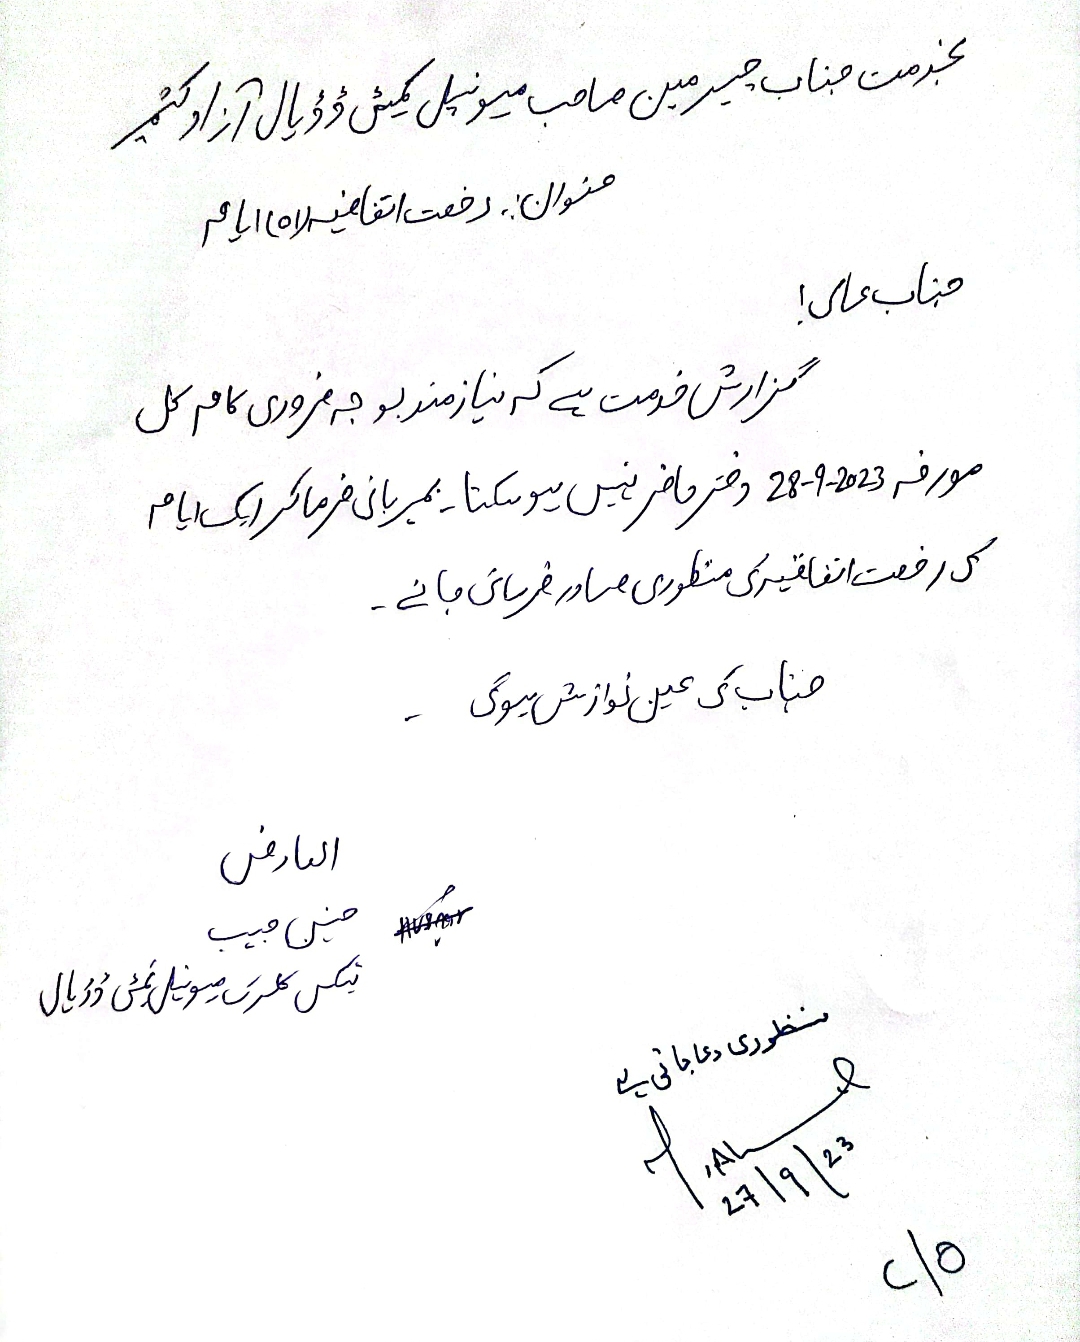 بخدمت جناب چیئرمین صاحب میونسپل کمیٹی ڈڈیال آزاد کشمیر
عنوان:۔ رخصت اتفاقیہ (01) ایام
جناب عالی!
گزارش خدمت ہے کہ نیازمند بوجہ ضروری کام کل
مورخہ 28-9-2023 دفتر حاضر نہیں ہو سکتا۔ بمہربانی فرما کر ایک ایام
کی رخصت اتفاقیہ کی منظوری صادر فرمائی جائے ۔
جناب کی عین نوازش ہوگی ۔
العارض
حبیب
ٹیکس کلرک میونسپل کمیٹی ڈڈیال
منظوری دی جاتی ہے
27/9/23
C/O